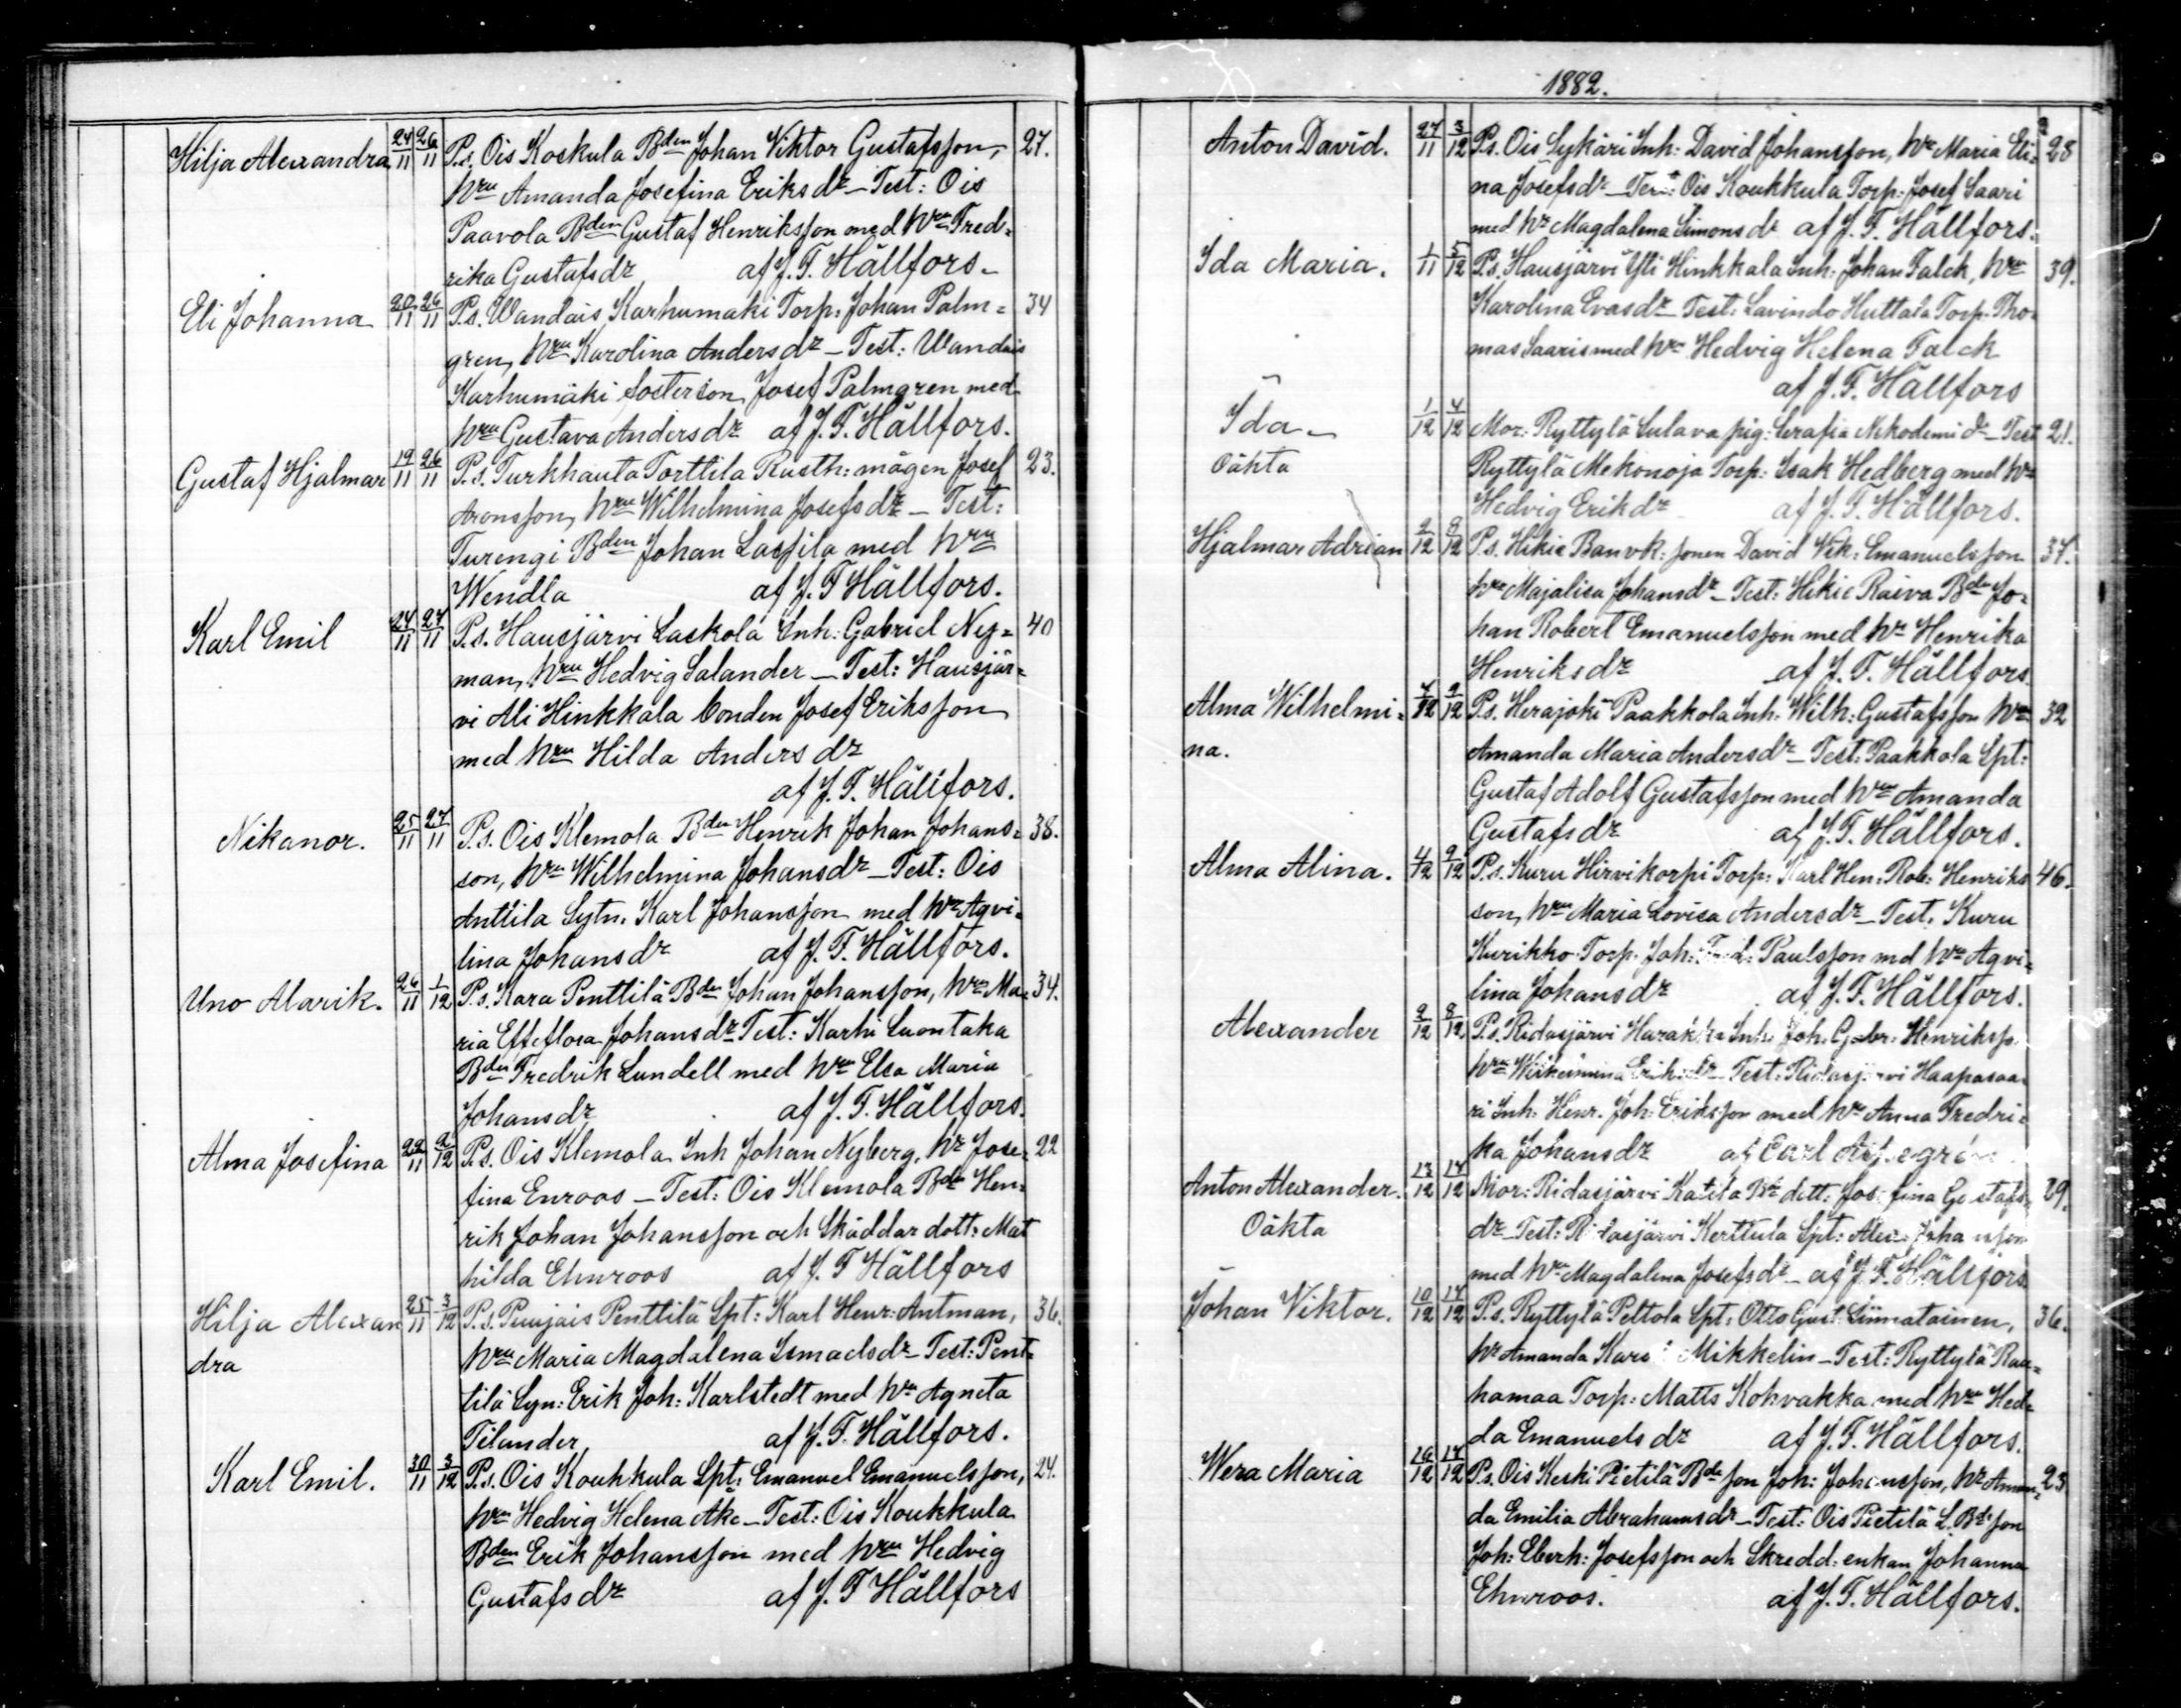 Hilja Alexandra 24/11 26/11 P.s. Ois Koskula Bden Johan Viktor Gustafsson, 27.
hru Amanda Josefina Eriksdr – Test: Ois
Paavola Bden Gustaf Henriksson med hru Fred-
rika Gustafsdr af J. F. Hällfors.
Eli Johanna 20/11 26/11 P.s. Wandais Karhumäki Torp: Johan Palm- 34
gren, hru Karolina Andersdr – Test: Wandais
Karhumäki Sosterson Josef Palmgren med
hru Gustava Andersdr af J. F. Hällfors.
Gustaf Hjalmar 19/11 26/11 P.s. Turkhauta Torttila Rusth: mågen Josef 23.
Aronsson, hru Wilhelmina Josefsdr – Test:
Turengi Bden Johan Lassila med hru
Wendla af J. F. Hällfors.
Karl Emil 24/11 27/11 P.s. Hausjärvi Laskola Inh: Gabriel Ny- 40
man, hru Hedvig Salander – Test: Hausjär-
vi Ali Hinkkala bonden Josef Eriksson
med hru Hilda Andersdr
af J. F. Hällfors.
Nikanor. 25/11 27/11 P.s. Ois Klemola Bden Henrik Johan Johans- 38.
son, hru Wilhelmina Johansdr – Test: Ois
Anttila Sytn. Karl Johansson med hru Aqvi-
lina Johansdr af J. F. Hällfors.
Uno Alarik. 26/11 1/12 P.s. Kara Penttilä Bden Johan Johansson, hru Ma- 34.
ria Johansdr Test: Karhi Luontaka
Bden Fredrik Lundell med hru Elsa Maria
Johansdr af J. F. Hällfors.
Alma Josefina 22/11 2/12 P.s. Ois Klemola Inh Johan Nyberg, hr Jose- 22
fina Enroos – Test: Ois Klemola Bden Hen-
rik Johan Johansson och Skäddar dott: Mat
hilda Ehnroos af J. F Hällfors
Hilja Alexan 25/11 3/12 P.s. Puujais Penttilä Spt: Karl Henr: Antman, 36.
dra hru Maria Magdalena Ismaelsdr – Test: Pent-
tilä Syn: Erik Joh: Karlstedt med hru Agneta
Tilander af J. F. Hällfors.
Karl Emil. 30/11 3/12 P.s. Ois Koukkula Spt: Emanuel Emanuelsson, 24.
hru Hedvig Helena Ake – Test: Ois Koukkula
Bden Erik Johansson med hru Hedvig
Gustafsdr af J. F Hällfors
1882.
Anton David. 27/11 3/12 P.s. Ois Sykäri Inh: David Johansson, hru Maria Eli- 28
na Josefsdr – Test: Ois Koukkula Torp: Josef Saari
med hr Magdalena Simonsdr af J. F. Hällfors.
Ida Maria. 1/11 5/12 P.s. Hausjärvi Yli Hinkkala Inh: Johan Falck, hru 39.
Karolina Evasdr – Test: Lavindo Huttala Torp. Tho-
mas Saaris med hru Hedvig Helena Falck
af J. F. Hällfors
Ida – 1/12 4/12 Mor: Ryttylä Sulava pig: Serafia Nikodemidr – Test 21.
Oäkta Ryttylä Mekonoja Torp: Isak Hedberg med hr
Hedvig Erikdr af J. F. Hällfors.
Hjalmar Adrian 2/12 8/12 P.s. Hikie Banvk: sonen David Vik: Emanuelsson 37.
hru Majalisa Johansdr – Test: Hikie Raiva Bden Jo-
han Robert Emanuelsson med hr Henrika
Henriksdr af J. F. Hällfors
Alma Wilhelmi- 4/12 9/12 P.s. Herajoki Paakkola Inh: Wilh: Gustafsson hru 32
na. Amanda Maria Andersdr – Test: Paakkola Spt:
Gustaf Adolf Gustafsson med hru Amanda
Gustafsdr af J. F. Hällfors.
Alma Alina. 4/12 9/12 P.s. Kuru Hirvikorpi Torp: Karl Hen: Rob: Henriks 46.
son, hru Maria Lovisa Andersdr – Test: Kuru
Kurikko Torp: Joh: Paulsson med hru Aqvi-
lina Johansdr af J. F. Hällfors.
Alexander 2/12 8/12 P.s. Ridasjärvi Inh: Joh: Gabr: Henrikss.
hru Wilhelmina – Test: Ridasjärvi Haapasaa-
ri Inh: Henr. Joh: Eriksson med hru Anna Fredri-
ka Johansdr af Carl
Anton Alexander. 13/12 17/12 Mor: Ridasjärvi Katila Bde dott: Josefina Gustafs- 29.
Oäkta dr – Test: Ridasjärvi Kerttula Spt: Alex: Johansson
med hru Magdalena Josefsdr – af J. F. Hällfors
Johan Viktor. 10/12 17/12 P.s. Ryttylä Peltola Spt: Otto Gust: Linnatainen, 36.
hr Amanda Mikkelin – Test: Ryttylä Rau-
hamaa Torp: Matts Kokvakka med hru Hed-
da Emanuelsdr af J. F. Hällfors.
Wera Maria 16/12 17/12 P.s. Ois Keski Pietilä Bde son Joh: Johansson, hr Aman- 23
da Emilia Abrahamsdr – Test: Ois Pietilä L. Bde son
Joh: Eberh: Josefsson och Skredd: enkan Johanna
Ehnroos. af J. F. Hällfors.